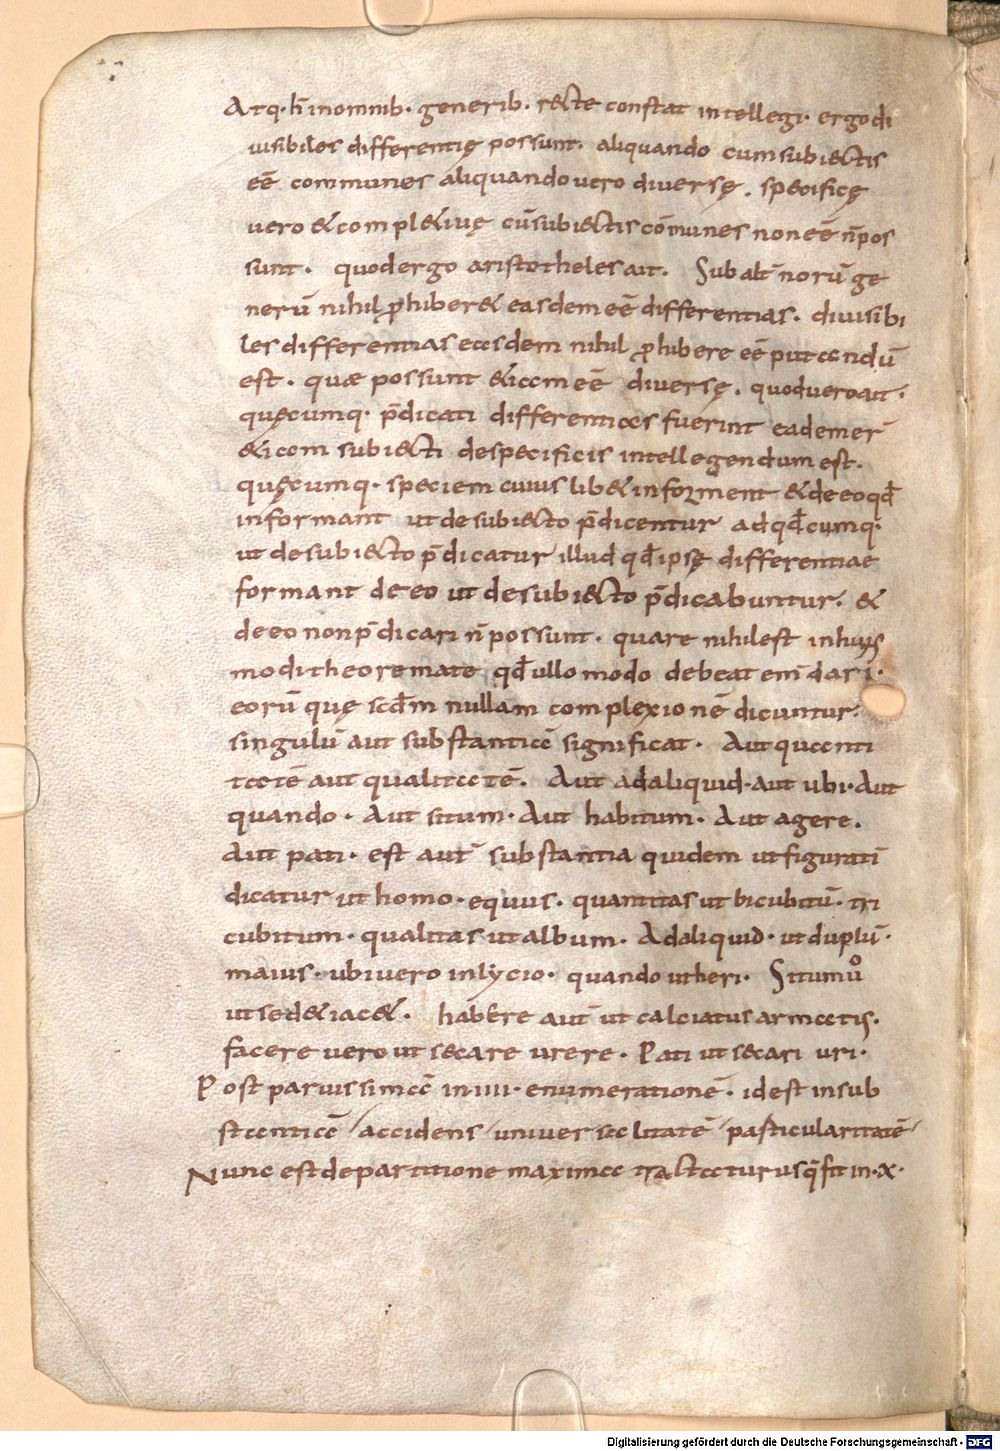 Atq· h̄ inomnib· generib· recte constat intellegi· ergo di
uisibiles differentię possunt· aliquando cum subiectis
eē communes aliquando uero diuersę· specificę
uero & compl&iuę cū subiectis cōmunes non eē n̄ pos
sunt· quod ergo aristotheles ait· Subalt̄norū ge
nerū nihil ꝓhiber& easdem eē differentias· diuisibi
les differentias easdem nihil ꝓhibere eē putandū
est· quae possunt &iam eē diuersę· quod uero ait·
quęcumq· p̄dicati differentiae fuerint eadem er̄
&iam subiecti de specificis intellegendum est·
quęcumq· speciem cuius lib& informent & de eo qđ
informant ut de subiecto p̄dicentur ad qđcumq·
ut de subiecto p̄dicatur illud qđ ipsę differentiae
formant de eo ut de subiecto p̄dicabuntur· &
de eo non p̄dicari n̄ possunt· quare nihil est in huius
modi theoremate qđ ullo modo debeat em̄dari·
eorū quę scđm nullam complexionē dicuntur·
singulū aut substantiā significat· Aut quanti
tatē aut qualitatē· Aut ad aliquid· aut ubi· Aut
quando· Aut situm· Aut habitum· Aut agere·
Aut pati· est aut̄ substantia quidem ut figurati
dicatur ut homo· equus· quantitas ut bicubitū· tri
cubitum· qualitas ut album· Ad aliquid· ut duplū·
maius· ubi uero in lycio· quando ut heri· Situm uͦ
ut sed& iac&· habere aut̄ ut calciatus armatus·
facere uero ut secare urere· Pati ut secari uri·
Post paruissimā in·iiii· enumerationē· id est in sub
stantiā / accidens / uniuersalitatē / particularitatē /
Nunc est de partitione maxima tractaturus q̄ fit in·x·
Digitalisierung gefördert durch die Deutsche Forschungsgemeinschaft - DFG